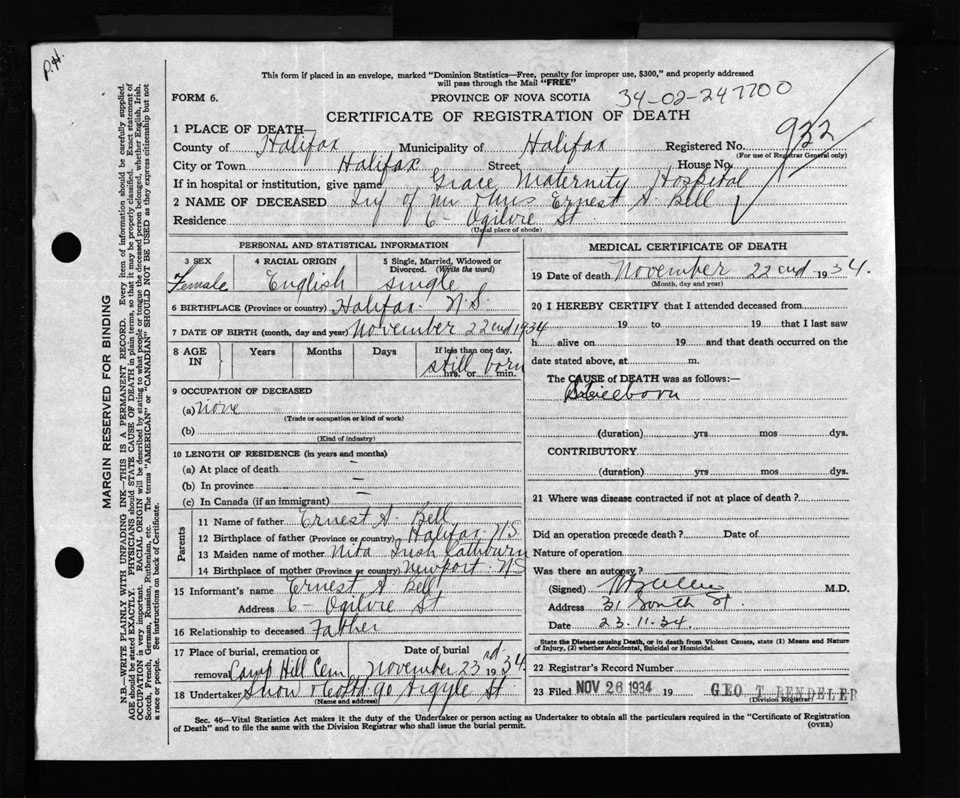 P.H.
This form if placed in an envelope, marked "Dominion Statistics—Free, penalty for improper use, $300," and properly addressed
will pass through the Mail "FREE"
FORM 6.
PROVINCE OF NOVA SCOTIA
34-02-247700
CERTIFICATE OF REGISTRATION OF DEATH
1 PLACE OF DEATH—
County of Halifax Municipality of Halifax Registered No. 932
(For use of Registrar General only)
City or Town Halifax Street House No.
If in hospital or institution, give name Grace Maternity Hospital
2 NAME OF DECEASED of Mr Ernest A. Bell
Residence 6 - Ogilvie St
(Usual place of abode)
PERSONAL AND STATISTICAL INFORMATION
3 SEX 4 RACIAL ORIGIN 5 Single, Married, Widowed or
Divorced. (Write the word)
Female English single
6 BIRTHPLACE (Province or country) Halifax N.S.
7 DATE OF BIRTH (month, day and year) November 22nd 1934
8 AGE IN Years Months Days If less than one day,
still born
hrs. or min.
9 OCCUPATION OF DECEASED
(a) none
(Trade or occupation or kind of work)
(b)
(Kind of industry)
10 LENGTH OF RESIDENCE (in years and months)
(a) At place of death —
(b) In province —
(c) In Canada (if an immigrant) —
Parents
11 Name of father Ernest A. Bell
12 Birthplace of father (Province or country) Halifax NS
13 Maiden name of mother Nita
14 Birthplace of mother (Province or country) Newport NS
15 Informant's name Ernest A. Bell
Address 6 - Ogilvie St
16 Relationship to deceased Father
17 Place of burial, cremation or Date of burial
removal Camp Hill Cem November 23rd 1934
18 Undertaker Snow Argyle St
(Name and address)
MEDICAL CERTIFICATE OF DEATH
19 Date of death November 22nd 1934.
(Month, day and year)
20 I HEREBY CERTIFY that I attended deceased from
19 to 19 that I last saw
h alive on 19 and that death occurred on the
date stated above, at m.
The CAUSE of DEATH was as follows:—
Stillborn
(duration) yrs mos dys.
CONTRIBUTORY
(duration) yrs mos dys.
21 Where was disease contracted if not at place of death?
Did an operation precede death? Date of
Nature of operation
Was there an autopsy?
(Signed) M.D.
Address 31 South St.
Date 23.11.34.
State the Disease causing Death, or in death from Violent Causes, state (1) Means and Nature
of Injury, (2) whether Accidental, Suicidal or Homicidal.
22 Registrar's Record Number
23 Filed NOV 26 1934 19 GEO T. RENDELER
(Division Registrar)
Sec. 46—Vital Statistics Act makes it the duty of the Undertaker or person acting as Undertaker to obtain all the particulars required in the "Certificate of Registration
of Death" and to file the same with the Division Registrar who shall issue the burial permit.
(OVER)
MARGIN RESERVED FOR BINDING
N.B.—WRITE PLAINLY WITH UNFADING INK—THIS IS A PERMANENT RECORD. Every item of information should be carefully supplied.
AGE should be stated EXACTLY. PHYSICIANS should STATE CAUSE OF DEATH in plain terms, so that it may be properly classified. Exact statement of
OCCUPATION is very important. RACIAL ORIGIN will be described by stating to what people or tongue the deceased person belonged, whether English, Irish,
Scotch, French, German, Russian, Ruthenian, etc. The terms "AMERICAN" or "CANADIAN" SHOULD NOT BE USED as they express citizenship but not
a race or people. See instructions on back of Certificate.